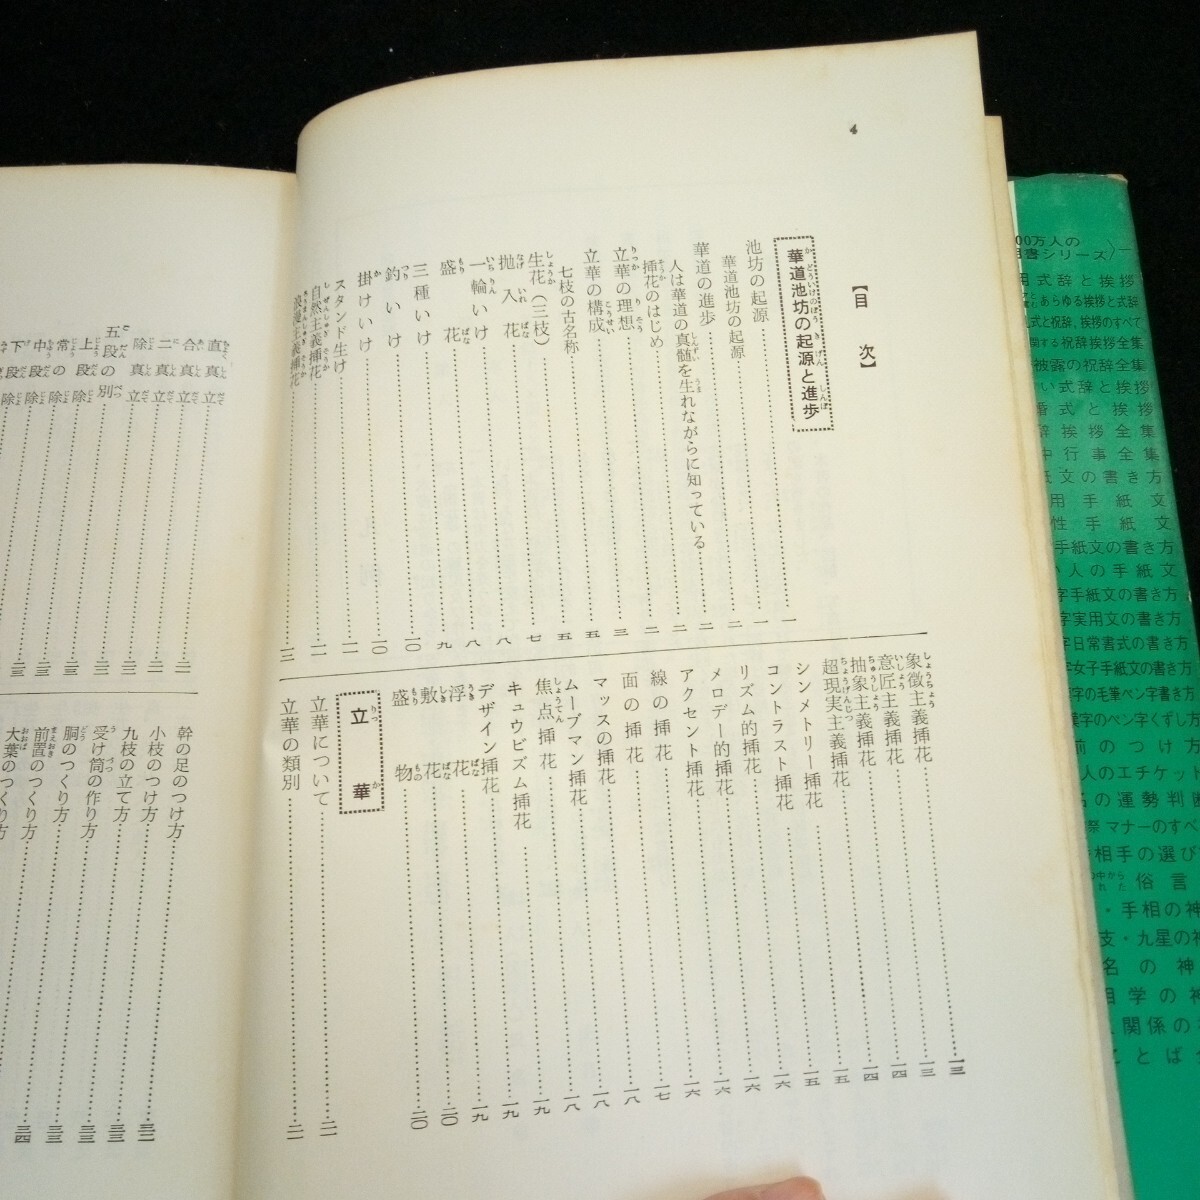 4
【目 次】
華道池坊の起源と進歩
池坊の起源……一
華道池坊の起源……一
華道の進歩……二
人は華道の真髄を生れながらに知っている……二
挿花のはじめ……二
立華の理想……三
立華の構成……五
七枝の古名称……五
生花（三枝）……七
抛入花……八
一輪いけ……八
盛花……九
三種いけ……一〇
釣いけ……一〇
掛けいけ……一〇
スタンド生け……一一
自然主義挿花……一一
浪漫主義挿花……一三
象徴主義挿花……一三
意匠主義挿花……一三
抽象主義挿花……一四
超現実主義挿花……一四
シンメトリー挿花……一五
コントラスト挿花……一五
リズム的挿花……一六
メロデー的挿花……一六
アクセント挿花……一六
線の挿花……一七
面の挿花……一八
マッスの挿花……一八
ムーブマン挿花……一八
焦点挿花……一九
キュウビズム挿花……一九
デザイン挿花……一九
浮花……二〇
敷花
盛物……二〇
立華
立華について……二一
立華の類別……二一
直真立
合真立
二真立
除真立
五段の別
上段除
常の除
中段除
下段除
幹の足のつけ方
小枝のつけ方
九枝の立て方……三三
受け筒の作り方……三三
胴のつくり方……三三
前置のつくり方……三三
大葉のつくり方……三四
00万人の
書シリーズ
用式辞と挨拶
とあらゆる挨拶と式辞
式と祝辞、挨拶のすべて
する祝辞挨拶全集
披露の祝辞全集
い式辞と挨拶
式と挨拶
辞挨拶全集
中行事全集
紙文の書き方
用手紙文
性手紙文
手紙文の書き方
人の手紙文
字手紙文の書き方
字実用文の書き方
字日常書式の書き方
字女子手紙文の書き方
字の毛筆ペン字書き方
漢字のペン字くずし方
前のつけ方
人のエチケット
名の運勢判断
祭マナーのすべ
相手の選び
俗言
・手相の神
支・九星の神
名の神
相学の神
関係の
とば